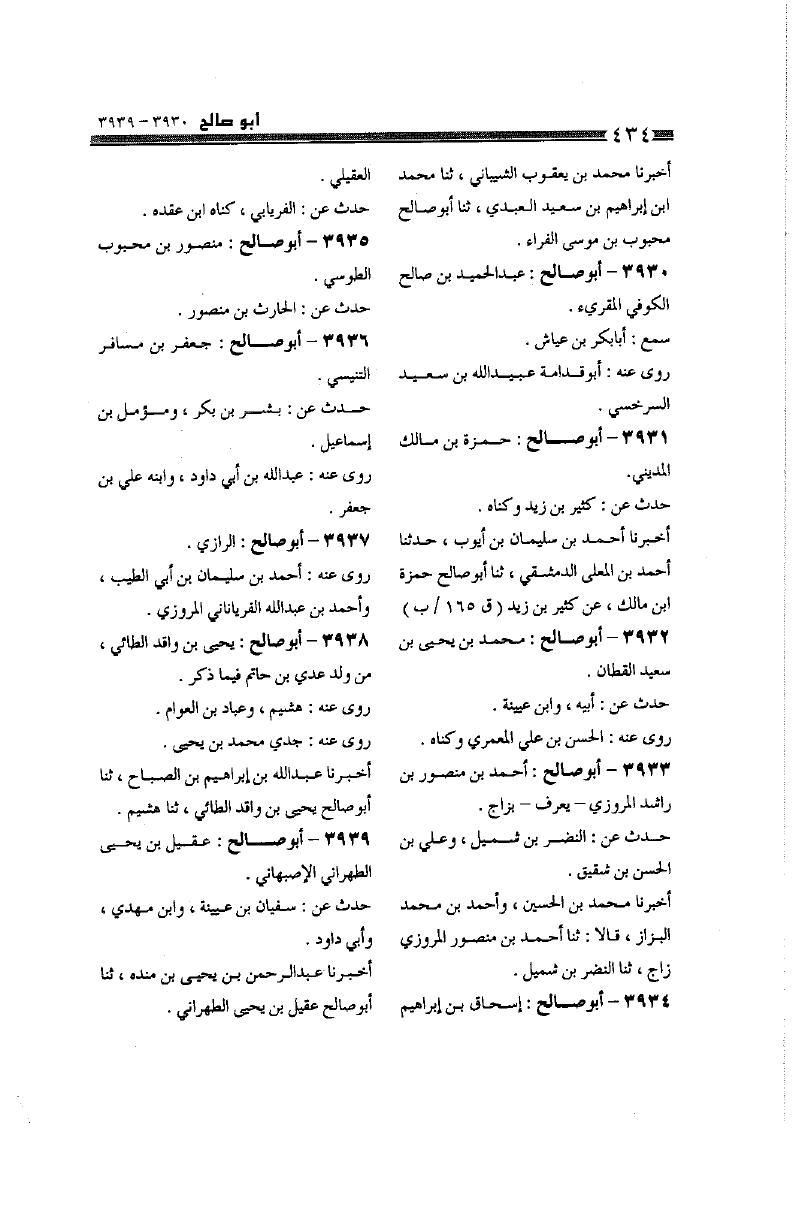 أبو صالح ٣٩٣٠ – ٣٩٣٩
٤٣٤
أخبرنا محمد بن يعقوب الشيباني ، ثنا محمد
ابن إبراهيم بن سعيد العبدي ، ثنا أبو صالح
محبوب بن موسى الفراء .
٣٩٣٠ – أبو صالح : عبدالحميد بن صالح
الكوفي المقريء .
سمع : أبابكر بن عياش .
روى عنه : أبو قدامة عبيدالله بن سعيد
السرخسي .
٣٩٣١ – أبو صالح : حمزة بن مالك
المديني.
حدث عن : كثير بن زيد وكناه .
أخبرنا أحمد بن سليمان بن أيوب ، حدثنا
أحمد بن المعلى الدمشقي ، ثنا أبو صالح حمزة
ابن مالك ، عن كثير بن زيد ( ق ١٦٥ / ب )
٣٩٣٢ – أبو صالح : محمد بن يحيى بن
سعيد القطان .
حدث عن : أبيه ، وابن عيينة .
روى عنه : الحسن بن علي المعمري وكناه .
٣٩٣٣ – أبو صالح : أحمد بن منصور بن
راشد المروزي – يعرف – بزاج .
حدث عن : النضر بن شميل ، وعلي بن
الحسن بن شقيق .
أخبرنا محمد بن الحسين ، وأحمد بن محمد
البزاز ، قالا : ثنا أحمد بن منصور المروزي
زاج ، ثنا النضر بن شميل .
٣٩٣٤ – أبو صالح : إسحاق بن إبراهيم
العقيلي .
حدث عن : الفريابي ، كناه ابن عقده .
٣٩٣٥ – أبو صالح : منصور بن محبوب
الطوسي .
حدث عن : الحارث بن منصور .
٣٩٣٦ – أبو صالح : جعفر بن مسافر
التنيسي .
حدث عن : بشر بن بكر ، ومؤمل بن
إسماعيل .
روى عنه : عبدالله بن أبي داود ، وابنه علي بن
جعفر .
٣٩٣٧ – أبو صالح : الرازي .
روى عنه : أحمد بن سليمان بن أبي الطيب ،
وأحمد بن عبدالله الفرياناني المروزي .
٣٩٣٨ – أبو صالح : يحيى بن واقد الطائي ،
من ولد عدي بن حاتم فيما ذكر .
روى عنه : هشيم ، وعباد بن العوام .
روى عنه : جدي محمد بن يحيى .
أخبرنا عبدالله بن إبراهيم بن الصباح ، ثنا
أبو صالح يحيى بن واقد الطائي ، ثنا هشيم .
٣٩٣٩ – أبو صالح : عقيل بن يحيى
الطهراني الإصبهاني .
حدث عن : سفيان بن عيينة ، وابن مهدي ،
وأبي داود .
أخبرنا عبدالرحمن بن يحيى بن منده ، ثنا
أبو صالح عقيل بن يحيى الطهراني .